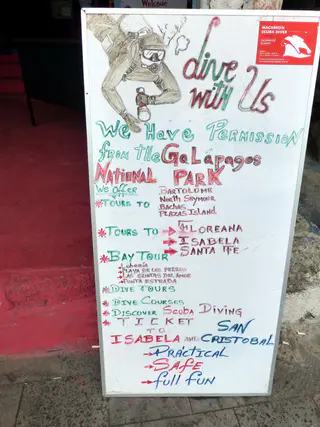 Welcome
MACARRON'S
SCUBA DIVER
dive
with Us
We Have Permission
from the GaLápagos
National Park
We Offer
*Tours to
Bartolome
North Seymour
Bachas
Plazas Island
*Tours to → Floreana
→ Isabela
→ Santa Fe
*Bay Tour
→ Lobería
→ Playa de los Perros
→ Las Grietas del Amor
→ Punta Estrada
* Dive Tours
* Dive Courses
* Discover Scuba Diving
* Ticket
to
Isabela and San Cristobal
→ Practical
→ Safe
→ full fun